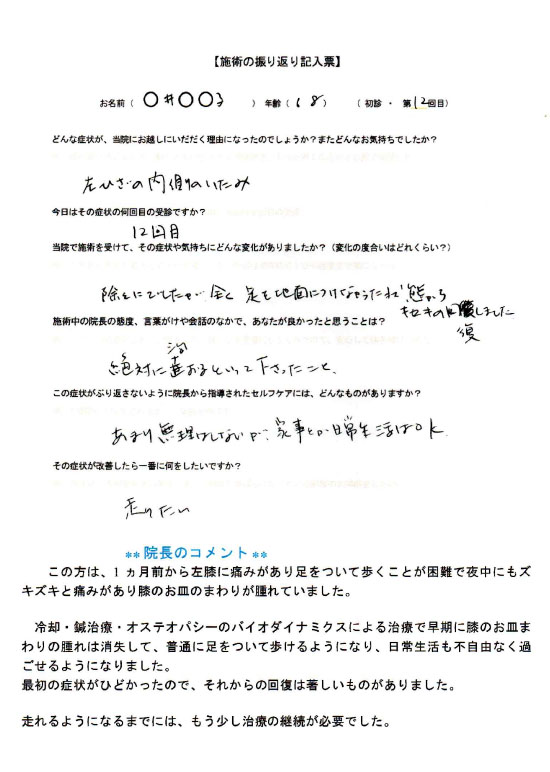 【施術の振り返り記入票】
お名前（ 〇井〇〇子 ） 年齢（ 68 ） （ 初診 ・ 第12回目）
どんな症状が、当院にお越しにいだだく理由になったのでしょうか？またどんなお気持ちでしたか？
左ひざの内側のいたみ
今日はその症状の何回目の受診ですか？
12回目
当院で施術を受けて、その症状や気持ちにどんな変化がありましたか？（変化の度合いはどれくらい？）
除々にでしたが、全く足を地面につけなかった状態から
キセキの回復しました
復
施術中の院長の態度、言葉がけや会話のなかで、あなたが良かったと思うことは？
治
絶対に直おるといって下さったこと、
この症状がぶり返さないように院長から指導されたセルフケアには、どんなものがありますか？
あまり無理はしないが、家事とか日常生活はOK
その症状が改善したら一番に何をしたいですか？
走りたい
** 院長のコメント **
この方は、１ヵ月前から左膝に痛みがあり足をついて歩くことが困難で夜中にもズ
キズキと痛みがあり膝のお皿のまわりが腫れていました。
冷却・鍼治療・オステオパシーのバイオダイナミクスによる治療で早期に膝のお皿ま
わりの腫れは消失して、普通に足をついて歩けるようになり、日常生活も不自由なく過
ごせるようになりました。
最初の症状がひどかったので、それからの回復は著しいものがありました。
走れるようになるまでには、もう少し治療の継続が必要でした。